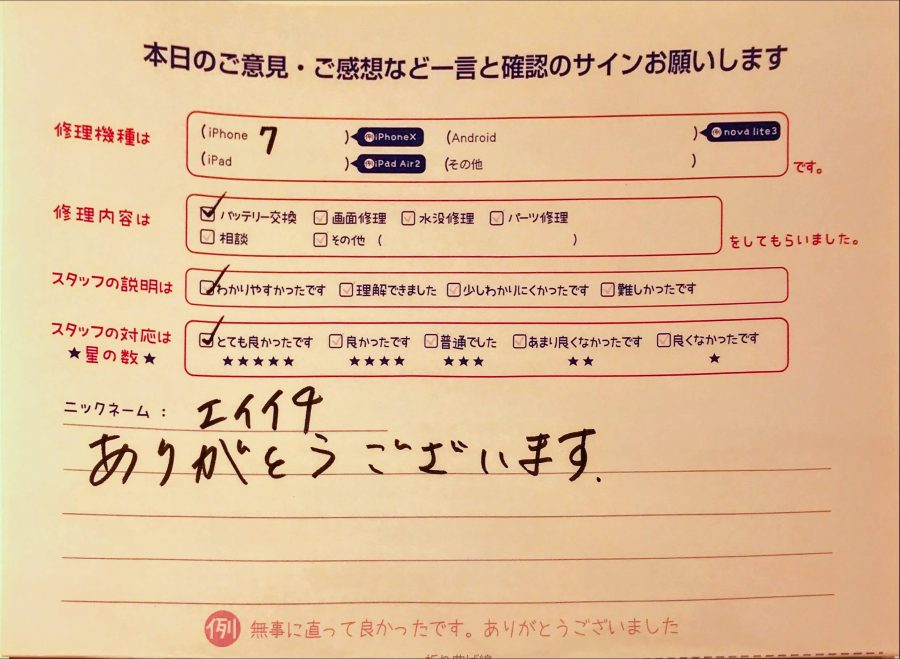 本日のご意見・ご感想など一言と確認のサインお願いします
修理機種は
(iPhone 7 ) 例iPhoneX (Android ) 例nova lite3
(iPad ) 例iPad Air2 (その他 ) です。
修理内容は
バッテリー交換 画面修理 水没修理 パーツ修理
相談 その他 ( ) をしてもらいました。
スタッフの説明は わかりやすかったです 理解できました 少しわかりにくかったです 難しかったです
スタッフの対応は とても良かったです 良かったです 普通でした あまり良くなかったです 良くなかったです
★星の数★ ★★★★★ ★★★★ ★★★ ★★ ★
ニックネーム: エイイチ
ありがとうございます.
例 無事に直って良かったです。ありがとうございました